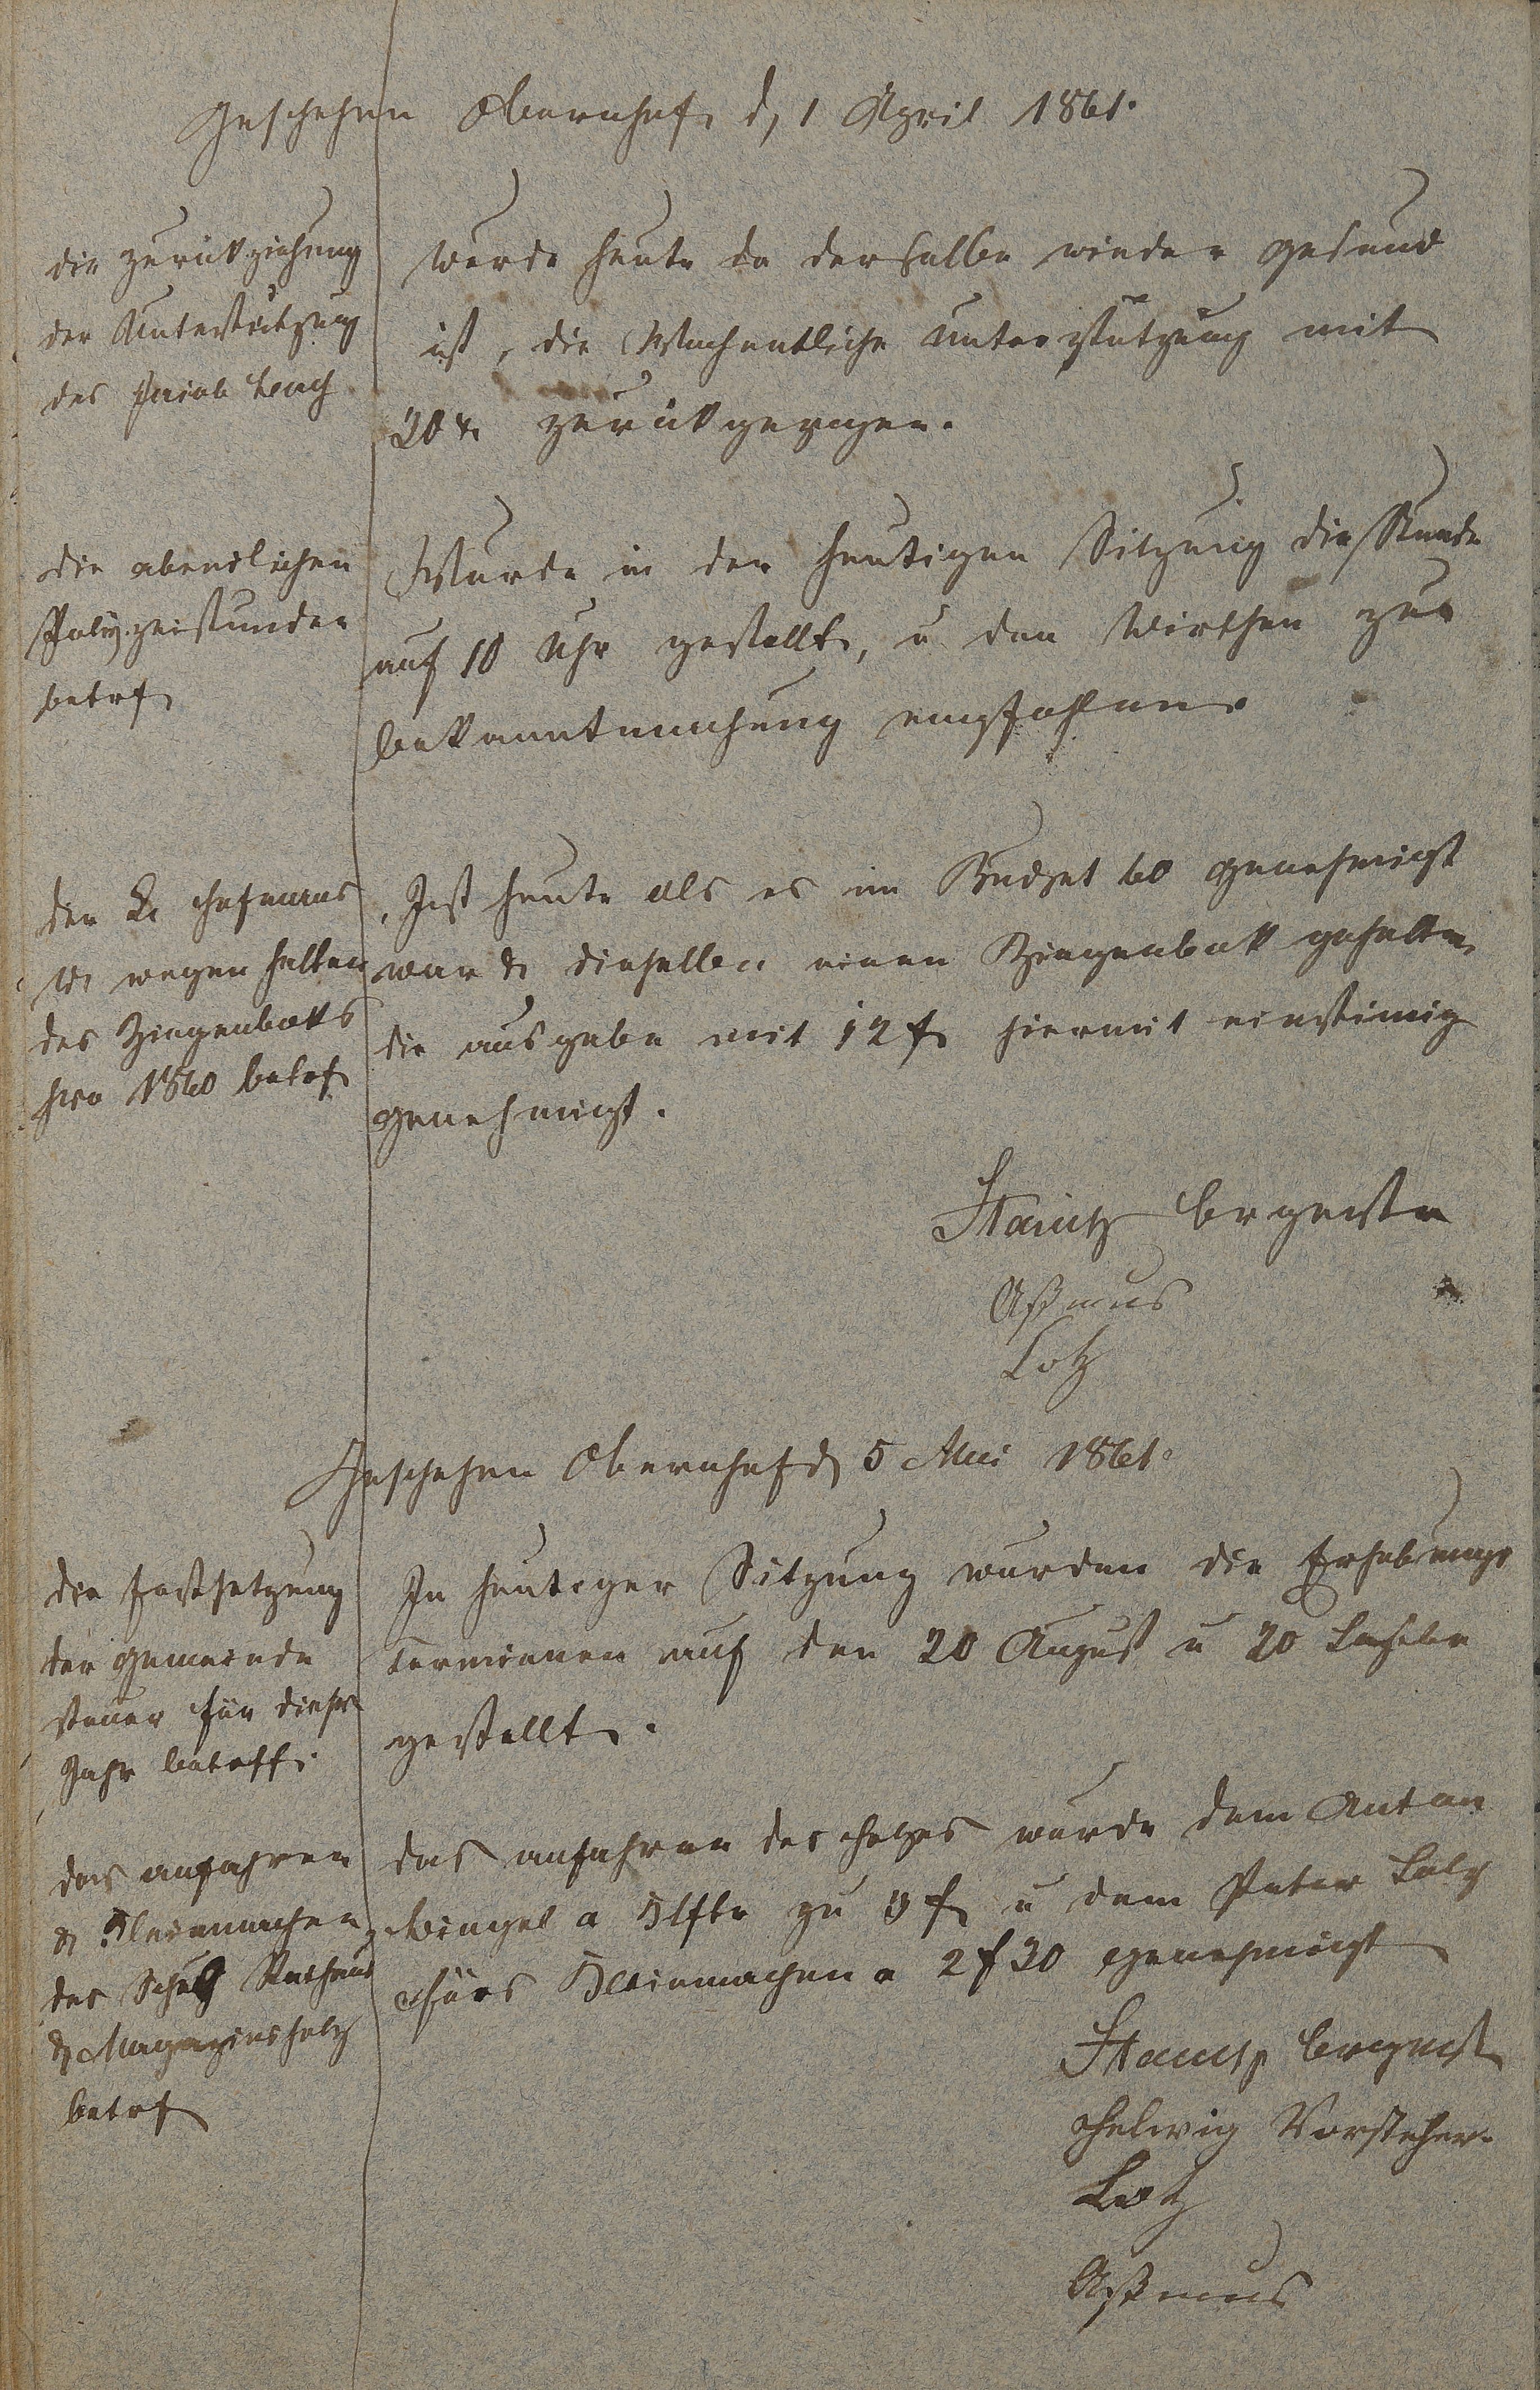 Geschehen Obernhof d, 1 April 1861.
die Zurükziehung
der Unterstützung
des Jacob
Wurde heute da derselbe wieder gesund
ist, die Wochentliche Unterstützung mit
20 x zurükgezogen.
die abendlichen
Polizeistunden
betrf
Wurde in der heutigen Sitzung die Stunde
auf 10 Uhr gestellt, u den Wirthen zur
bekanntmachung empfohlen
der
W wegen halten
des Ziegenboks
pro 1860 betrf
Ist heute als es im Budget 60 genehmigt
war & dieselben einen Ziegenbok gehalten
die ausgabe mit 12 f hiermit einstimig
genehmigt.
Stamtz Brgmstr
Aßmus
Lotz
Geschehen Obernhof d 5 Mai 1861.
die festsetzung
der Gemeinde
steuer für dieses
Jahr betrff.
In heutiger Sitzung wurden die Erhebungs
Terminen auf den 20 August u 20
gestellt.
das anfahren
& Kleinmachen
des Schul Rathaus
& Magazinsholz
betrf
das anfahren des Holzes wurde dem Anton
a Klftr zu 3 f u dem Peter
fürs Kleinmachen a 2 f 30 genehmigt
Stamtz Brgmst
Helwig Vorsteher.
Lotz
Aßmus